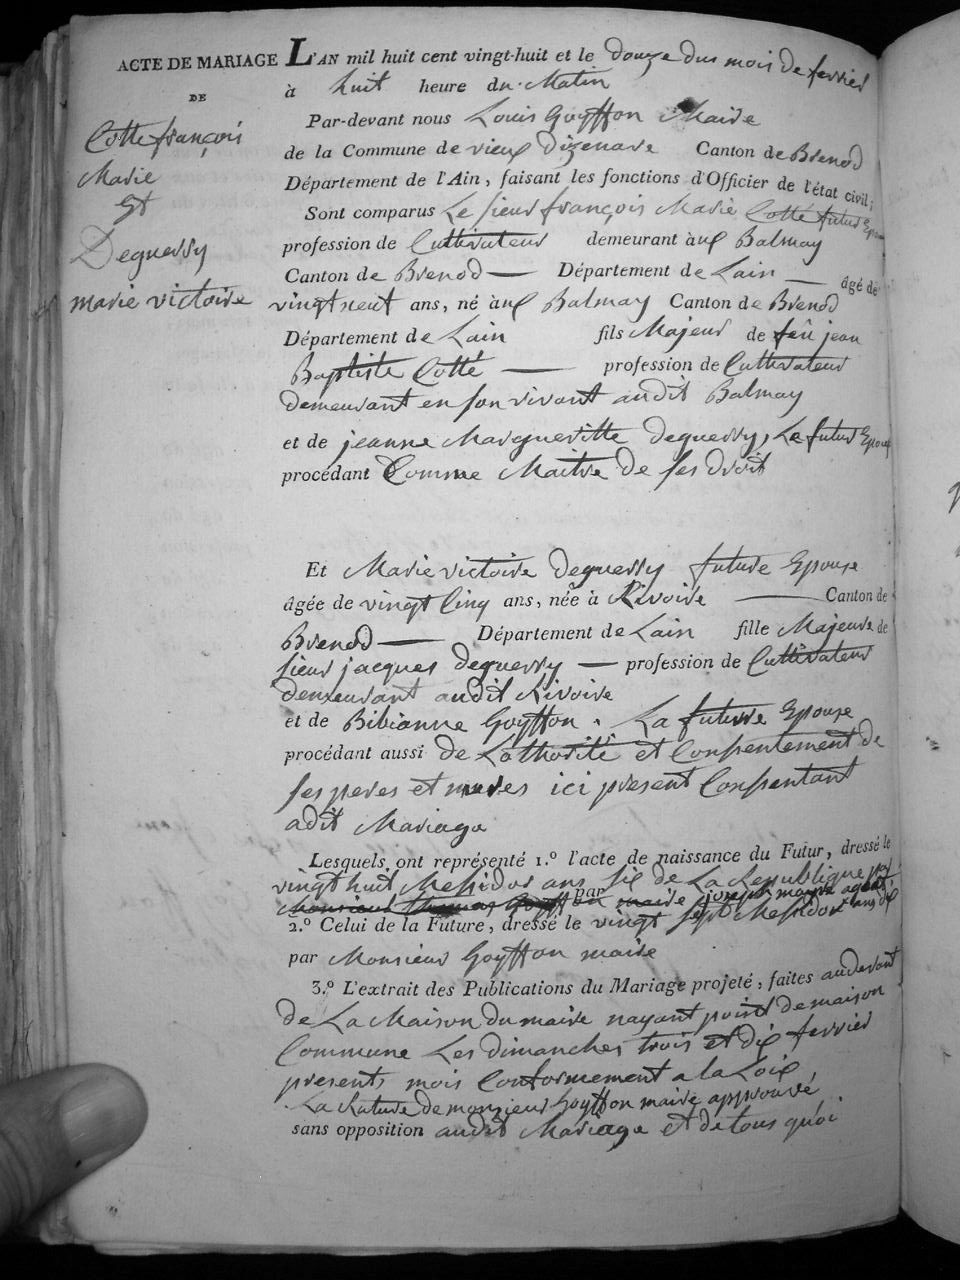 ACTE DE MARIAGE
DE
Cotte françois
Marie
Et
Deguerry
marie victoire
L'AN mil huit cent vingt-huit et le douze dus mois de fevrier
à huit heure du Matin
Par-devant nous Louis Goyffon Maire
de la Commune de vieux dizenave Canton de Brenod
Département de l'Ain, faisant les fonctions d'Officier de l'état civil;
Sont comparus Le sieur françois Marie Cotte futur Epoux
profession de Cultivateur demeurant àux Balmay
Canton de Brenod — Département de Lain — âgé de
vingt neut ans, né àux Balmay Canton de Brenod
Département de Lain fils Majeur de feû jean
Baptiste Cotté — profession de Cultivateur
demeurant en son vivant audit Balmay
et de jeanne Margueritte deguerry, Le futur Epoux
procédant Comme Maitre de ses droit
Et Marie victoire deguerry future Epouse
âgée de vingt Cinq ans, née à Rivoire — Canton de
Brenod — Département de Lain fille Majeure de
sieur jacques deguerry — profession de Cultivateur
demeurant audit Rivoire
et de Bibianne Goyffon. La future Epouse
procédant aussi de Lathorité et Consentement de
ses peres et meres ici present Consentant
adit Mariage
Lesquels ont représenté 1.º l'acte de naissance du Futur, dressé le
vingt huit Messidor ans six de La Republique par
Monsieur Thomas Goyffon par maire joseph agent
2.º Celui de la Future, dressé le vingt sept Messidor ans dix
par Monsieur Goyffon maire
3.º L'extrait des Publications du Mariage projeté, faites audevant
de La Maison du maire nayant point de maison
Commune Les dimanches trois et dix fevrier
presents mois Conformement a la Loix
La Rature de monsieur Goyffon maire approuvé
sans opposition audit Mariage et de tous quoi